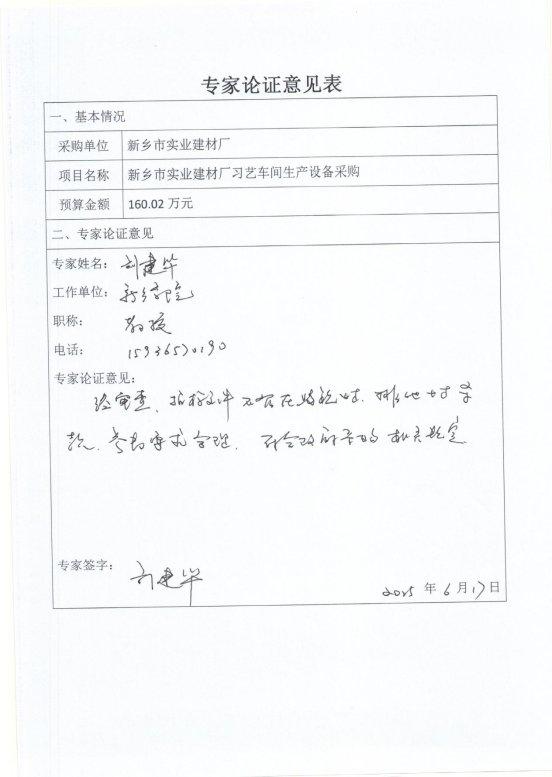 专家论证意见表
一、基本情况
采购单位 新乡市实业建材厂
项目名称 新乡市实业建材厂习艺车间生产设备采购
预算金额 160.02 万元
二、专家论证意见
专家姓名：刘建华
工作单位：新乡学院
职称：教授
电话：15936570190
专家论证意见：
经审查，招标文件不存在歧视性、排他性条
款，参数要求合理，符合政府采购相关规定
专家签字：刘建华
2025 年 6 月 17 日